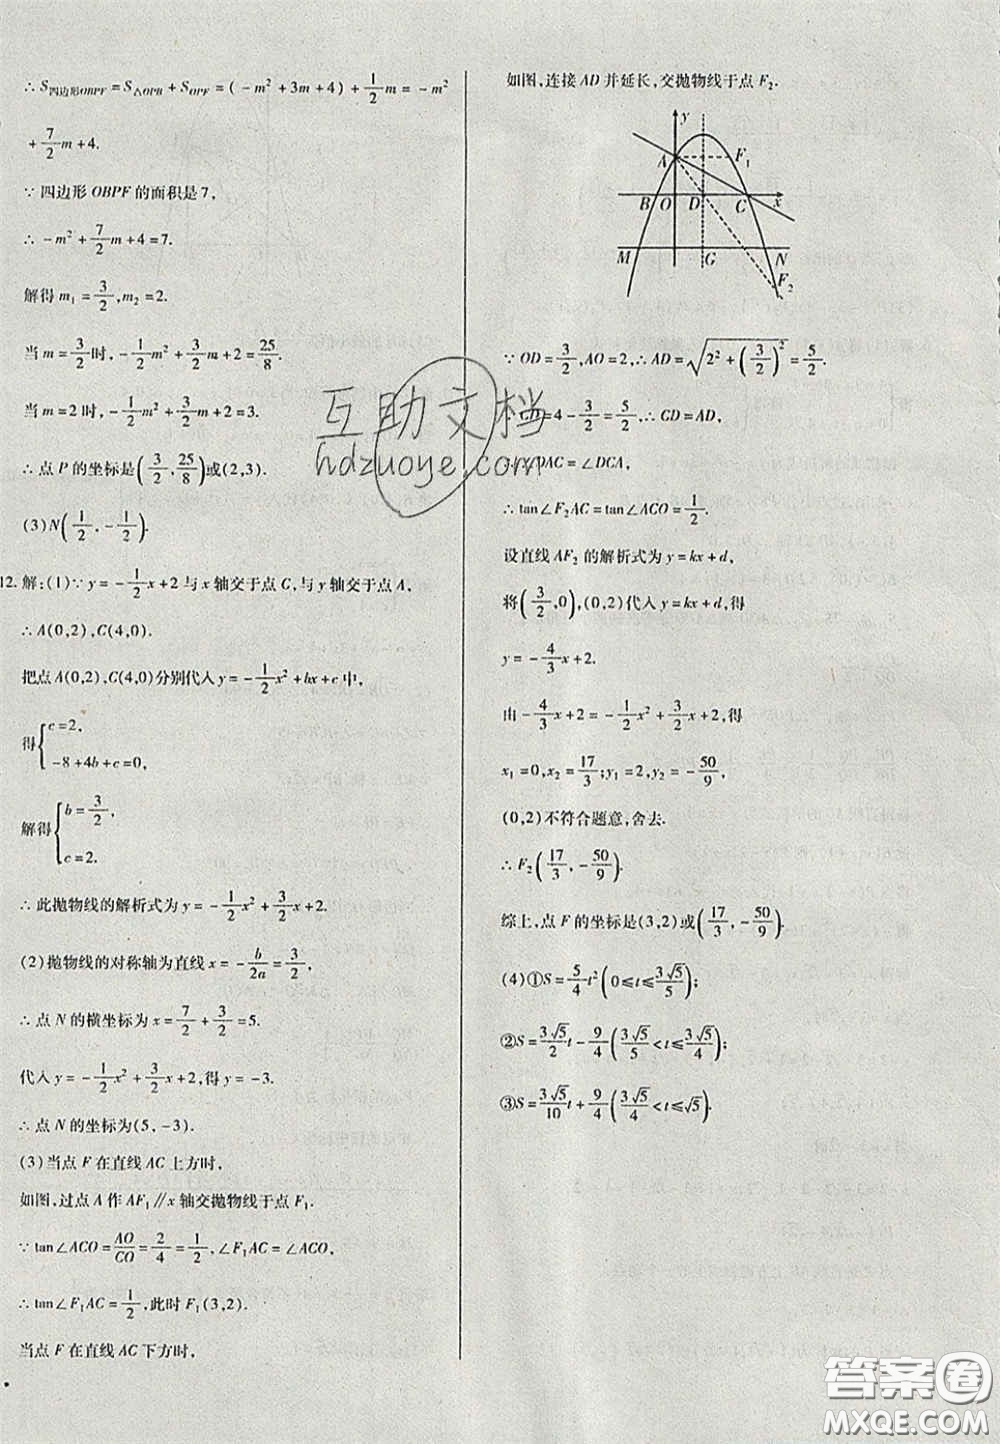 ∴S四边形OBPF=S△OPB+S△OPF=(-m²+3m+4)+1/2m=-m²
+7/2m+4.
∵四边形OBPF的面积是7,
∴-m²+7/2m+4=7.
解得m₁=3/2,m₂=2.
当m=3/2时,-1/2m²+3/2m+2=25/8.
当m=2时,-1/2m²+3/2m+2=3.
∴点P的坐标是(3/2,25/8)或(2,3).
(3)N(1/2,-1/2).
12.解:(1)∵y=-1/2x+2与x轴交于点C,与y轴交于点A,
∴A(0,2),C(4,0).
把点A(0,2),C(4,0)分别代入y=-1/2x²+bx+c中,
得{c=2,
-8+4b+c=0,
解得{b=3/2,
c=2.
∴此抛物线的解析式为y=-1/2x²+3/2x+2.
(2)抛物线的对称轴为直线x=-b/2a=3/2,
∴点N的横坐标为x=7/2+3/2=5.
代入y=-1/2x²+3/2x+2,得y=-3.
∴点N的坐标为(5,-3).
(3)当点F在直线AC上方时,
如图,过点A作AF₁∥x轴交抛物线于点F₁.
∵tan∠ACO=AO/CO=2/4=1/2,∠F₁AC=∠ACO,
∴tan∠F₁AC=1/2,此时F₁(3,2).
当点F在直线AC下方时,
如图,连接AD并延长,交抛物线于点F₂.
y
A F₁
B O D C x
M G N
F₂
∵OD=3/2,AO=2,∴AD=√(2²+(3/2)²)=5/2.
CD=4-3/2=5/2,∴CD=AD,
∠DAC=∠DCA,
∴tan∠F₂AC=tan∠ACO=1/2.
设直线AF₂的解析式为y=kx+d,
将(3/2,0),(0,2)代入y=kx+d,得
y=-4/3x+2.
由-4/3x+2=-1/2x²+3/2x+2,得
x₁=0,x₂=17/3;y₁=2,y₂=-50/9.
(0,2)不符合题意,舍去.
∴F₂(17/3,-50/9).
综上,点F的坐标是(3,2)或(17/3,-50/9).
(4)①S=5/4t²(0≤t≤3√5/5);
②S=3√5/2t-9/4(3√5/5<t≤3√5/4);
③S=3√5/10t+9/4(3√5/4<t≤√5).
互助文档
hdzuoye.com
答案圈
MXQE.COM